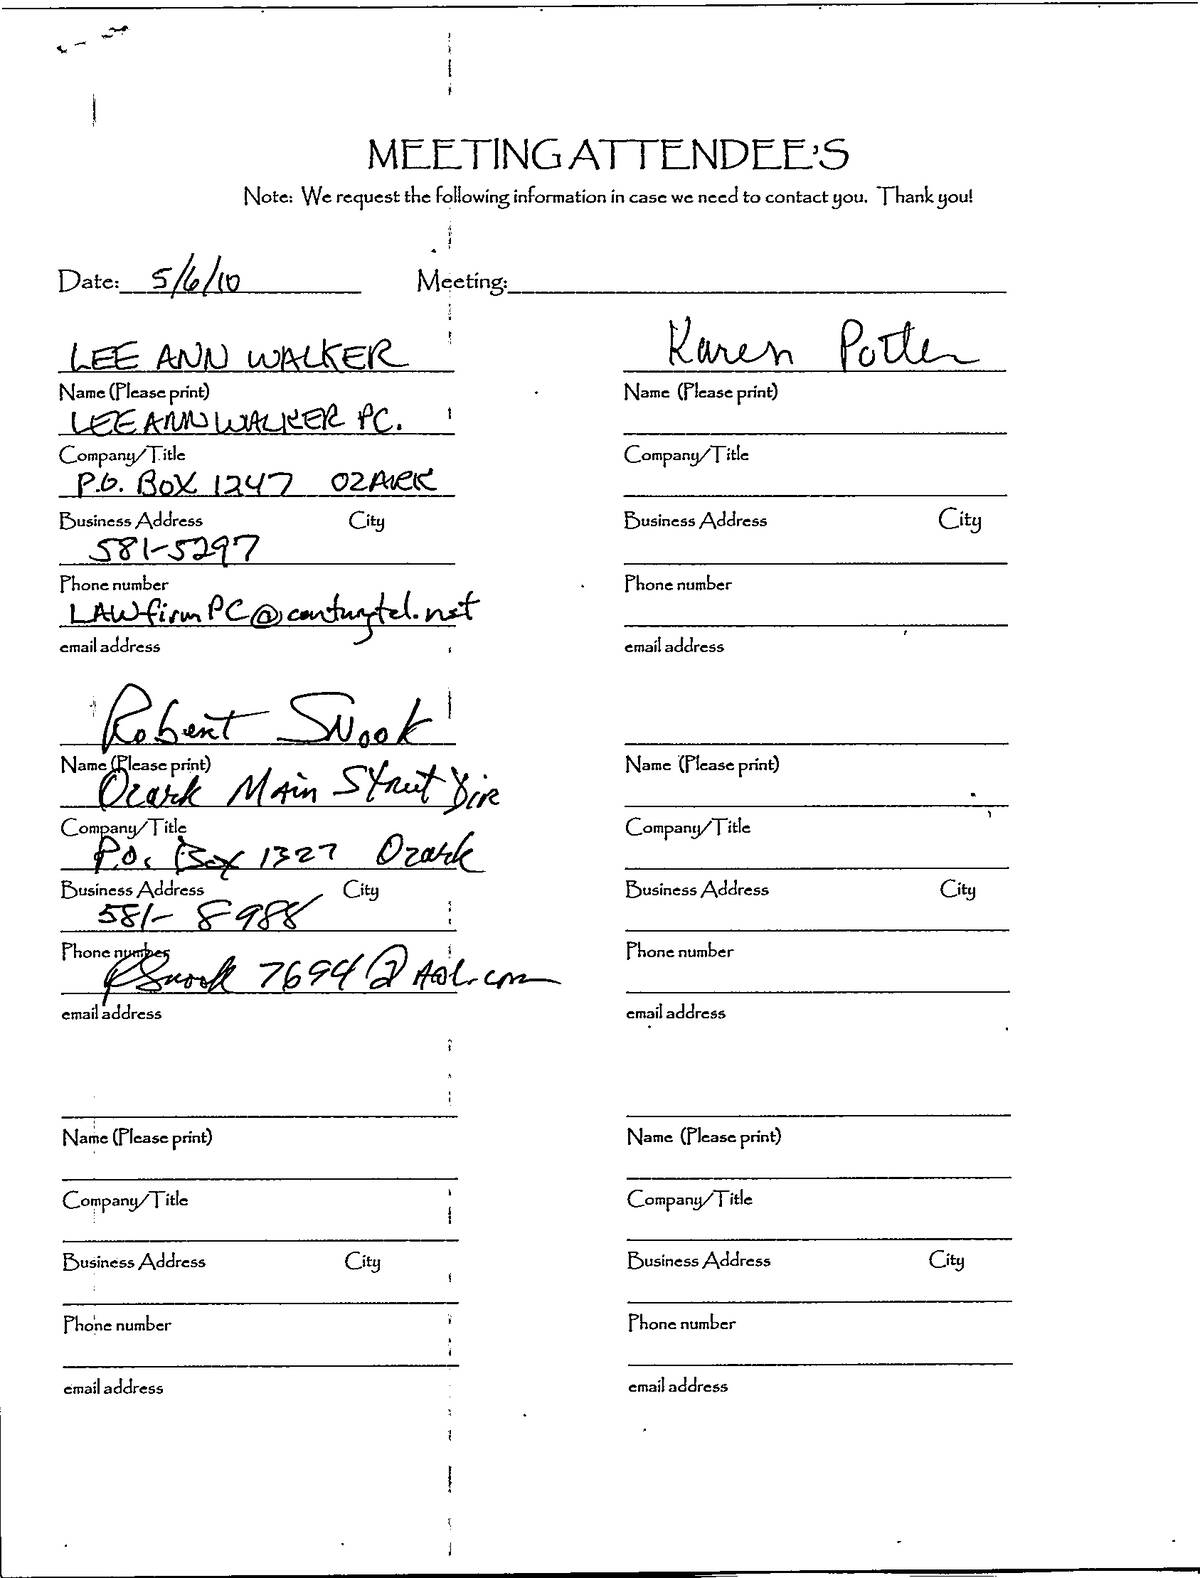 MEETING ATTENDEE'S
Note: We request the following information in case we need to contact you. Thank you!
Date: 5/6/10 Meeting:
LEE ANN WALKER
Name (Please print)
LEE ANN WALKER PC.
Company/Title
P.O. BOX 1247 OZARK
Business Address City
581-5297
Phone number
LAWfirmPC@centurytel.net
email address
Karen Potter
Name (Please print)
Company/Title
Business Address City
Phone number
email address
Robert Snook
Name (Please print)
Ozark Main Street Dir
Company/Title
P.O. Box 1327 Ozark
Business Address City
581-8988
Phone number
RSnook7694@Aol.com
email address
Name (Please print)
Company/Title
Business Address City
Phone number
email address
Name (Please print)
Company/Title
Business Address City
Phone number
email address
Name (Please print)
Company/Title
Business Address City
Phone number
email address